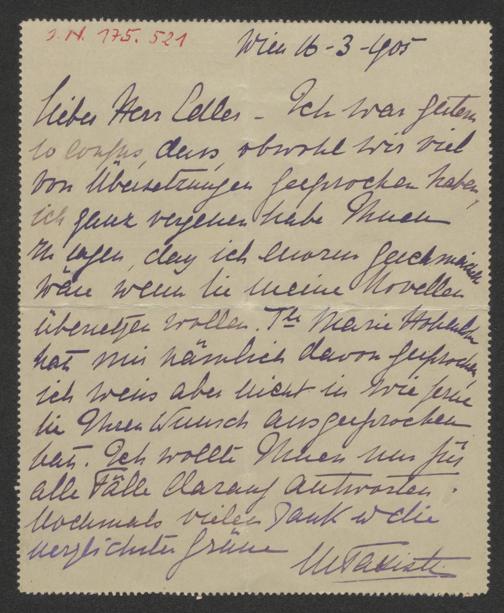 I. N. 175.521
Wien 16-3-905
Lieber Herr Edler - Ich war gestern
so confus, dass, obwohl wir viel
von Übersetzungen gesprochen haben,
ich ganz vergessen habe Ihnen
zu sagen, dass ich enorm geschmeichelt
wäre wenn Sie meine Novellen
übersetzen wollen. Marie Hohenlohe
hat mir nämlich davon gesprochen,
ich weiss aber nicht in wie ferne
Sie Ihren Wunsch ausgesprochen
hat. Ich wollte Ihnen nur für
alle Fälle darauf antworten.
Nochmals vielen Dank u die
herzlichsten Grüsse